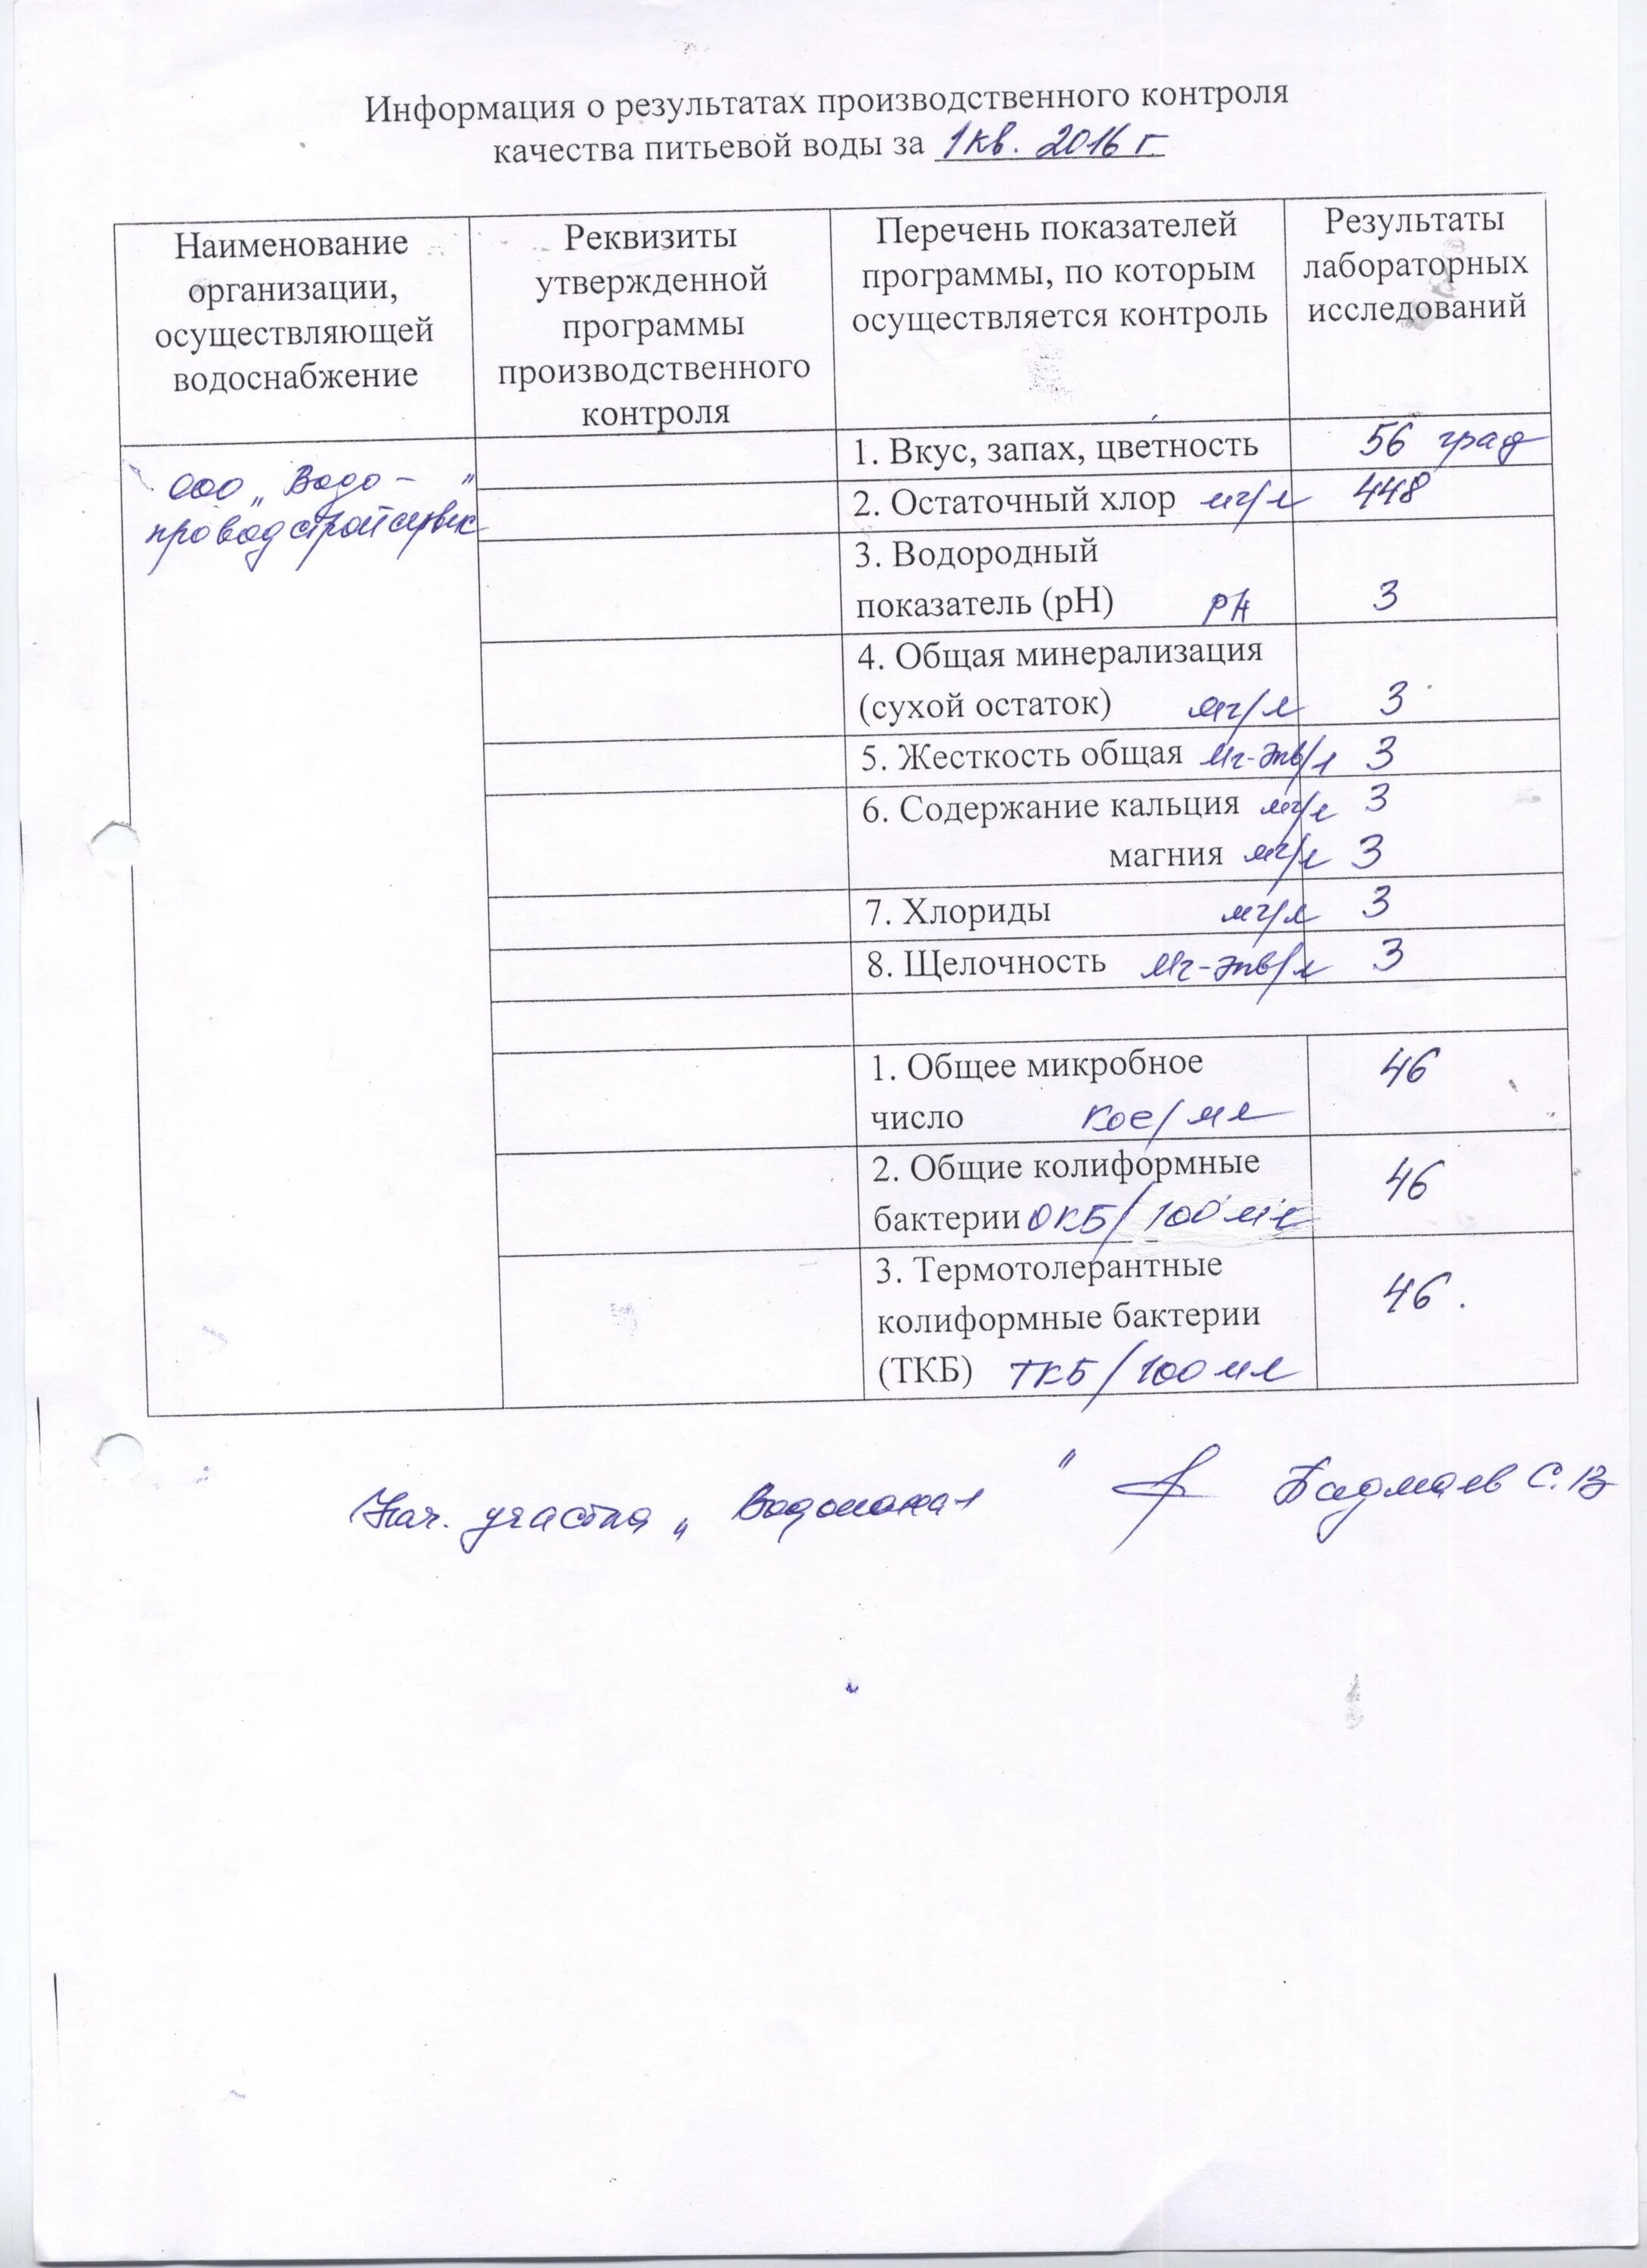 Информация о результатах производственного контроля
качества питьевой воды за 1кв. 2016 г.
Наименование
организации,
осуществляющей
водоснабжение
Реквизиты
утвержденной
программы
производственного
контроля
Перечень показателей
программы, по которым
осуществляется контроль
Результаты
лабораторных
исследований
ООО „Водо-"
проводстройсервис
1. Вкус, запах, цветность 56 град
2. Остаточный хлор мг/л 448
3. Водородный
показатель (рН) рН 3
4. Общая минерализация
(сухой остаток) мг/л 3
5. Жесткость общая Мг-экв/л 3
6. Содержание кальция мг/л 3
магния мг/л 3
7. Хлориды мг/л 3
8. Щелочность Мг-экв/л 3
1. Общее микробное 46
число КОЕ/мл
2. Общие колиформные 46
бактерии ОКБ/100 мл
3. Термотолерантные
колиформные бактерии 46.
(ТКБ) ТКБ/100 мл
Нач. участка „Водоканал" Бадмаев С.В